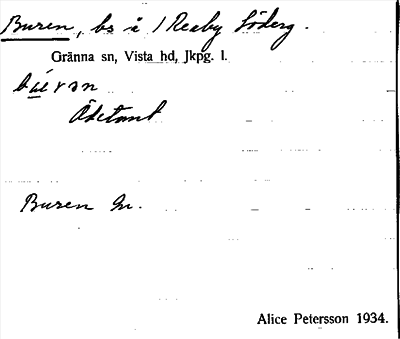 Buren, bs å 1 Reaby Söderg.
Gränna sn, Vista hd, Jkpg. l.
Ödetomt
Buren Gn.
Alice Petersson 1934.